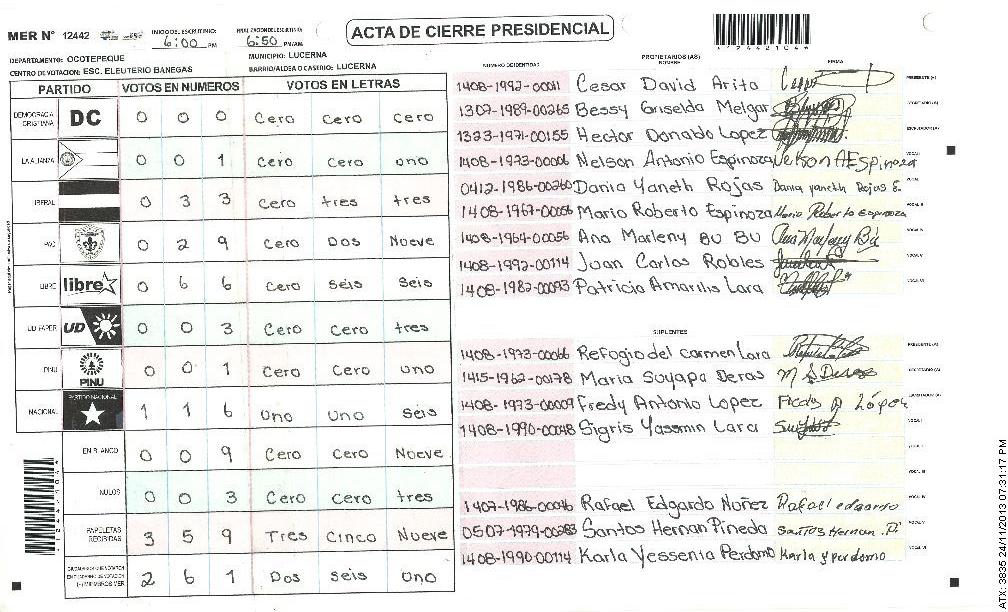 MER N° 12442
INICIO DEL ESCRUTINIO: 6:00 PM
FINALIZACION DEL ESCRUTINIO: 6:50 PM/AM
ACTA DE CIERRE PRESIDENCIAL
DEPARTAMENTO: OCOTEPEQUE
MUNICIPIO: LUCERNA
CENTRO DE VOTACION: ESC. ELEUTERIO BANEGAS
BARRIO/ALDEA O CASERIO: LUCERNA
PARTIDO VOTOS EN NUMEROS VOTOS EN LETRAS
DEMOCRACIA CRISTIANA DC 0 0 0 Cero Cero Cero
LA ALIANZA 0 0 1 Cero Cero uno
LIBERAL 0 3 3 Cero tres tres
PAC 0 2 9 Cero Dos Nueve
LIBRE libre 0 6 6 Cero Seis Seis
UD FAPER UD 0 0 3 Cero Cero tres
PINU PINU 0 0 1 Cero Cero uno
NACIONAL PARTIDO NACIONAL 1 1 6 Uno Uno Seis
EN BLANCO 0 0 9 Cero Cero Nueve
NULOS 0 0 3 Cero Cero tres
PAPELETAS RECIBIDAS 3 5 9 Tres Cinco Nueve
CIUDADANOS QUE VOTARON EN CUADERNO DE VOTACION (+) MIEMBROS MER 2 6 1 Dos Seis Uno
NUMERO DE IDENTIDAD PROPIETARIOS (AS) NOMBRE FIRMA
1408-1992-00011 Cesar David Arita PRESIDENTE (A)
1307-1989-00265 Bessy Griselda Melgar SECRETARIO (A)
1323-1971-00155 Hector Donado Lopez ESCRUTADOR (A)
1408-1973-00006 Nelson Antonio Espinoza Nelson A Espinoza VOCAL I
0412-1986-00260 Dania Yaneth Rojas Dania yaneth Rojas E. VOCAL II
1408-1967-00056 Mario Roberto Espinoza Mario Roberto Espinoza VOCAL III
1408-1964-00056 Ana Marleny BU BU Ana Marleny Bú VOCAL IV
1408-1992-00114 Juan Carlos Robles VOCAL V
1408-1982-00093 Patricio Amarilis Lara VOCAL VI
SUPLENTES
1408-1973-00066 Refogio del carmen Lara PRESIDENTE (A)
1415-1962-00178 Maria Suyapa Deras M S Deras SECRETARIO (A)
1408-1973-00009 Fredy Antonio Lopez Fredy A López ESCRUTADOR (A)
1408-1990-00048 Sigris Yassmin Lara VOCAL I
VOCAL II
VOCAL III
1407-1986-00046 Rafael Edgardo Nuñez Rafael edgardo VOCAL IV
0507-1979-00283 Santos Hernan Pineda Santos Hernan P. VOCAL V
1408-1990-00114 Karla Yessenia Perdomo Karla y perdomo VOCAL VI
ATX: 3835 24/11/2013 07:31:17 PM